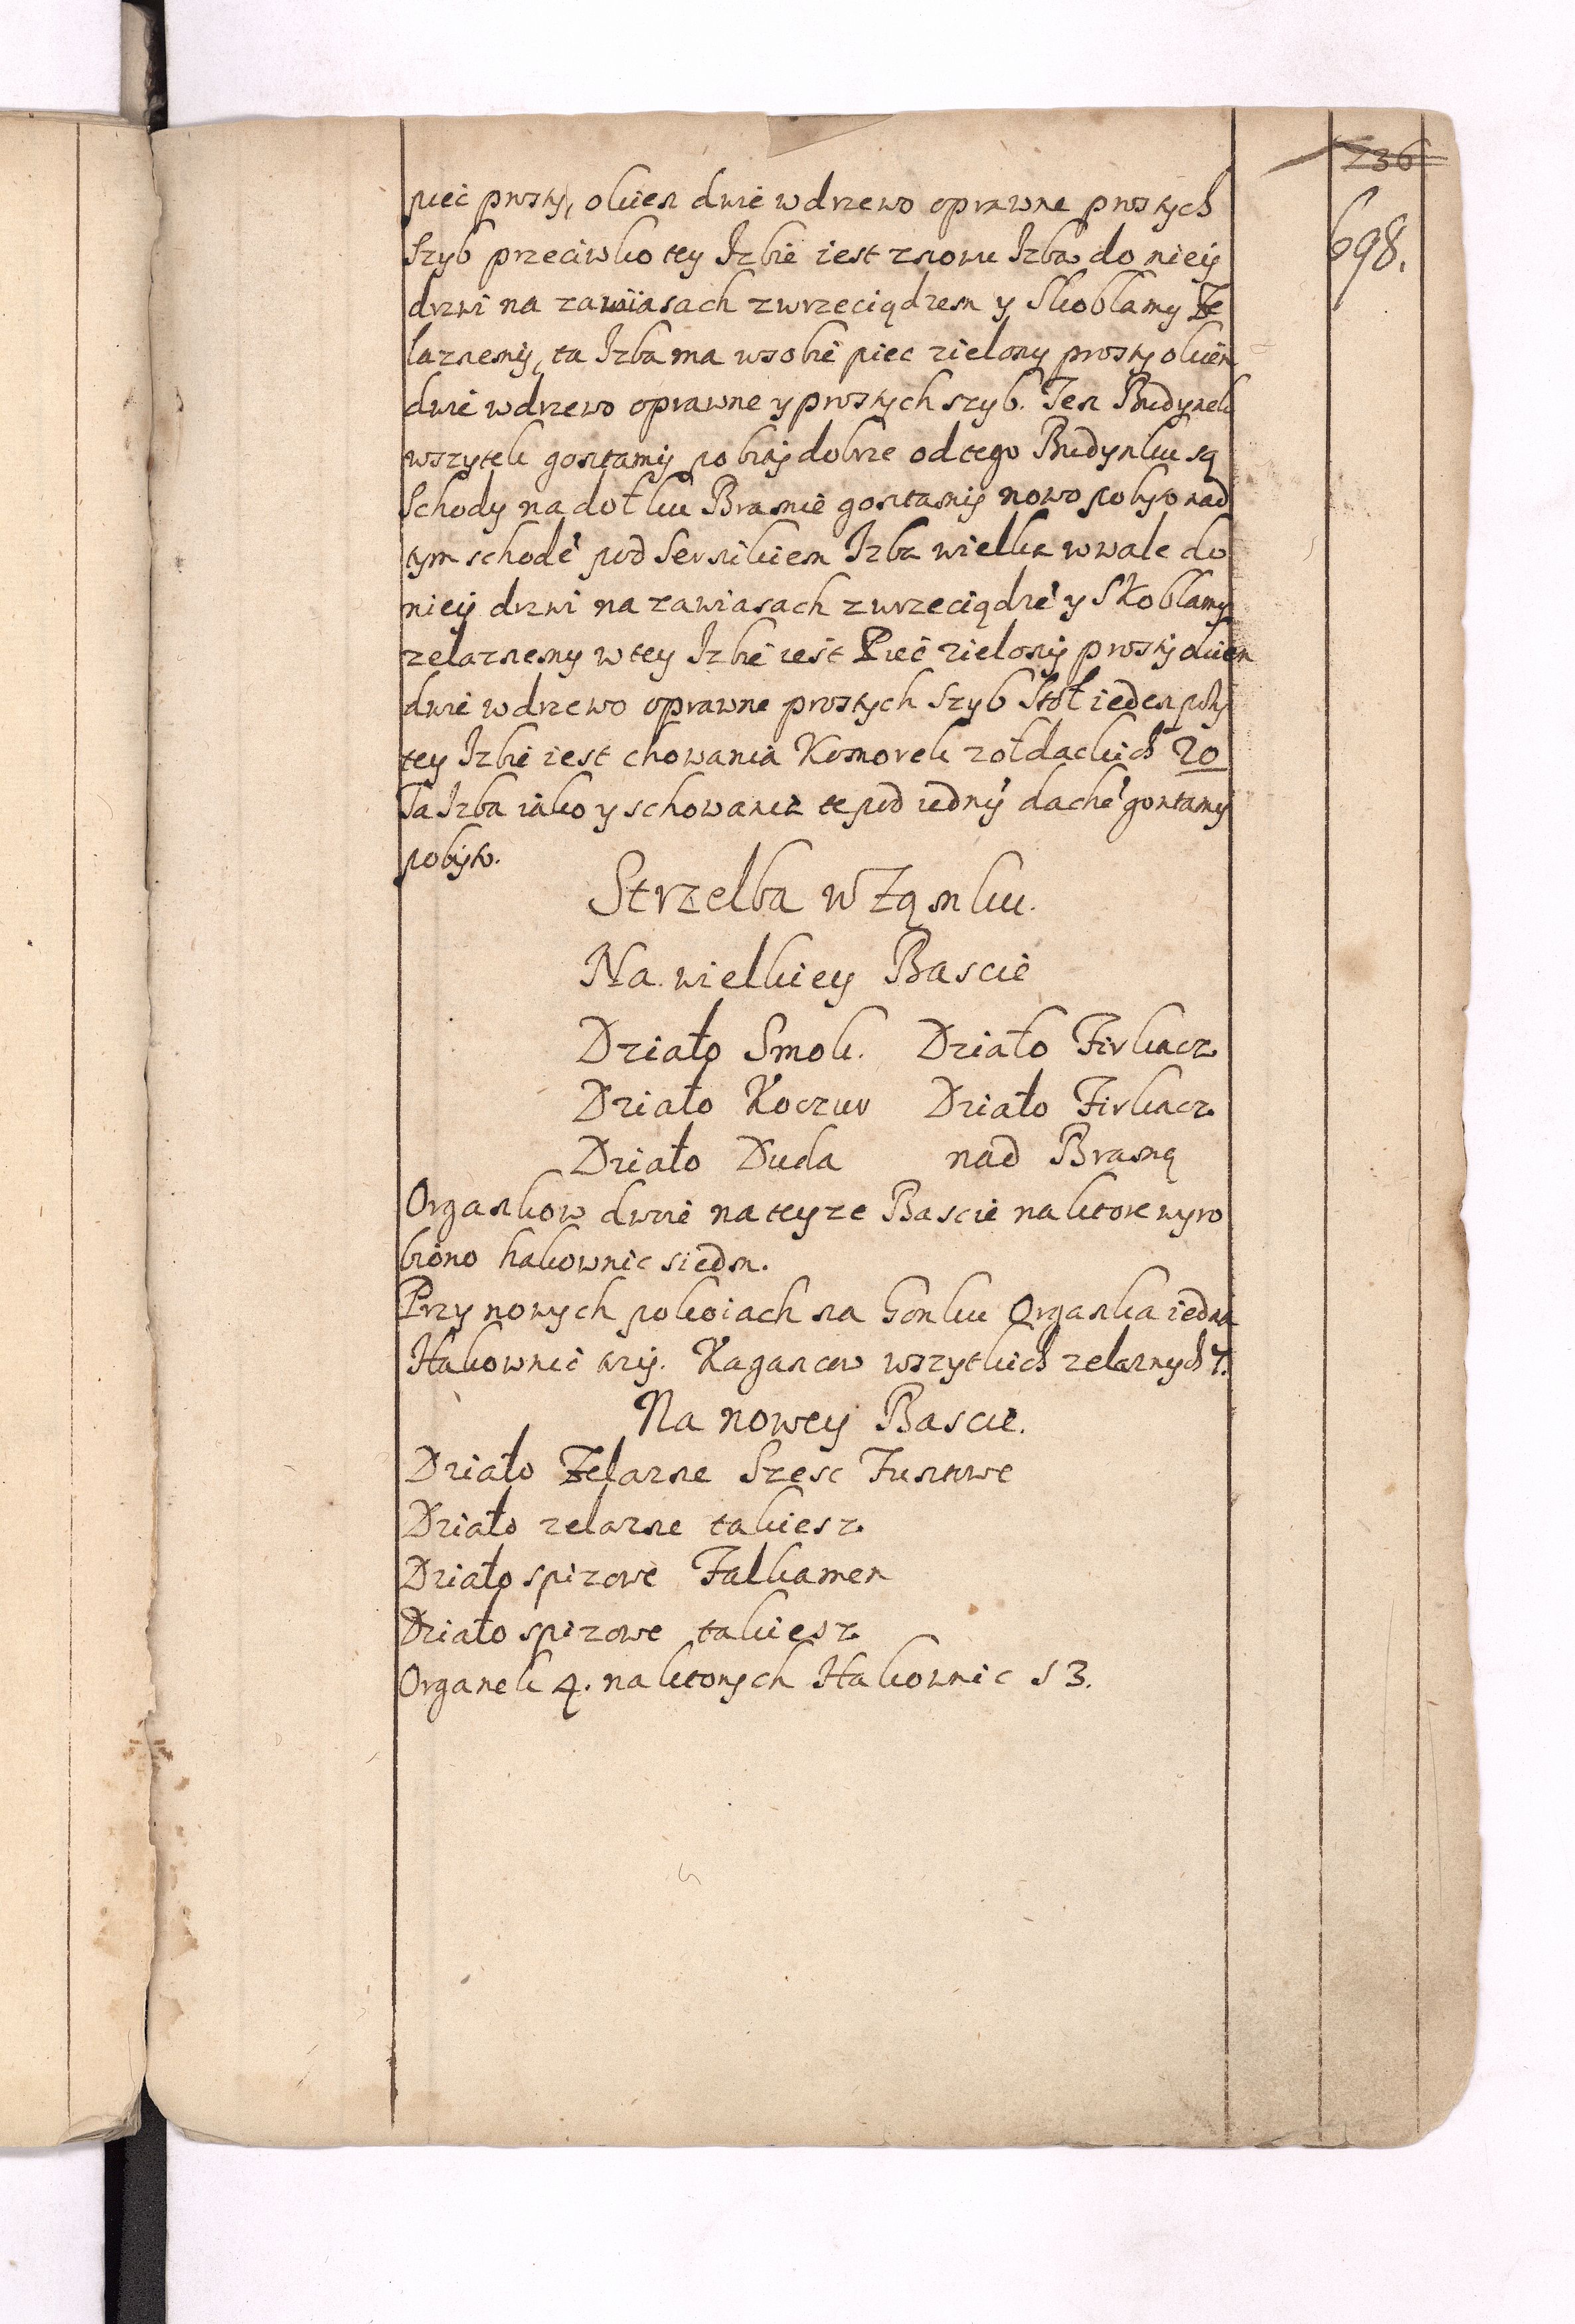 236
698.
piec prosty, okien dwie w drzewo oprawne prostych
Szyb przeciwko tey Izbie iest znowu Izba do nieij
drzwi na zawiasach z wrzeciądzem y Skoblamy Że
laznemij, ta Izba ma w sobie piec zielony prosty okien
dwie w drzewo oprawne y prostych szyb. Ten Budynek
wszytek gontamij pobity dobrze od tego Budynku są
Schody na doł ku Bramie gontamij nowo pobyto nad
tym schodē pod Sernikiem Izba wielka w wale do
nieij drzwi na zawiasach z wrzeciądzē y Skoblamy
zelaznemy w tey Izbie iest Piec zielonij prosty okien
dwie w drzewo oprawne prostych Szyb Stoł ieden przy
tey Izbie iest chowania Komorek zołdackich 20
Ta Izba iako y schowania te pod iednÿ dachē gontamÿ
pobyto.
Strzelba w Ząmku.
Na wielkiey Bascie
Działo Smok. Działo Firkacz
Działo Koczur Działo Firkacz
Działo Duda nad Bramą
Organkow dwie na teyze Bascie na ktore wyro
biono hakownic siedm.
Przy nowych pokoiach na Gonku Organka iedna
Hakownic trzij. Kagancow wszytkich zelaznych 7.
Na nowey Bascie.
Działo Żelazne Szesc Funtowe
Działo zelazne takiesz
Działo spizowe Falkamen
Działo spizowe takiesz
Organek 4. na ktorych Hakownic 13.